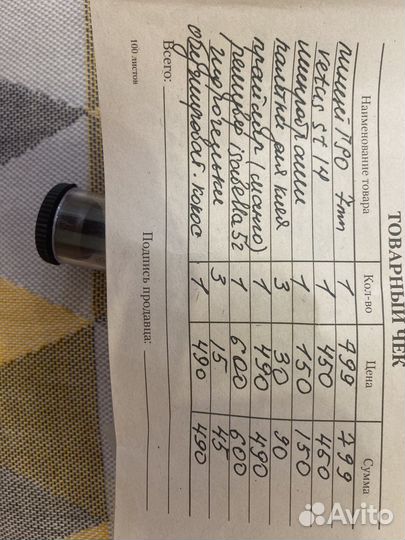 ТОВАРНЫЙ ЧЕК
Наименование товара Кол-во Цена Сумма
пинцет ПРО 7mm 1 799 799
vetus ST 14 1 450 450
микробраши 1 150 150
палетка для клея 3 30 90
праймер (манго) 1 490 490
ремувер isabella 52 1 600 600
гидрогелики 3 15 45
обезжириват. кокос 1 490 490
Всего:
100 листов
Подпись продавца:
Avito